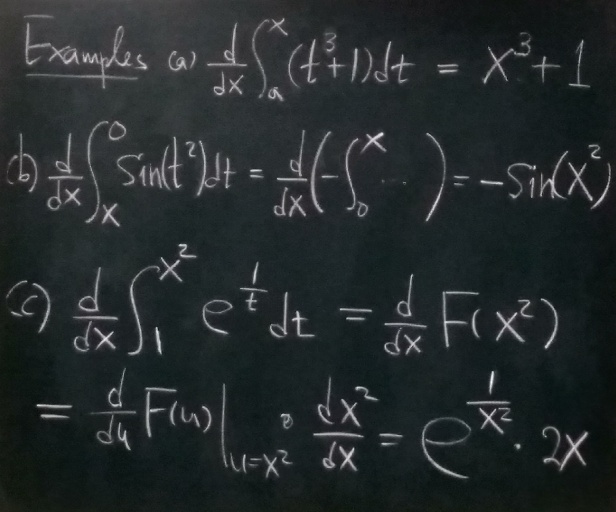 Examples (a) d/dx ∫ₐˣ (t³+1)dt = x³+1
(b) d/dx ∫ₓ⁰ Sin(t²)dt = d/dx (-∫₀ˣ ... ) = -Sin(x²)
(c) d/dx ∫₁^(x²) e^(1/t) dt = d/dx F(x²)
= d/du F(u)|_(u=x²) · dx²/dx = e^(1/x²) · 2x